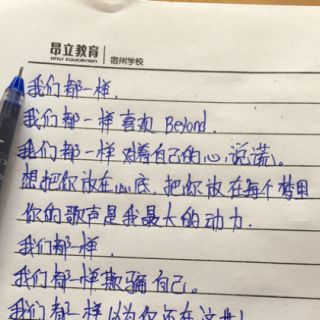 昂立教育 宿州学校
ONLY EDUCATION
我们都一样.
我们都一样喜欢 Beyond.
我们都一样对着自己的心,说谎。
想把你放在心底,把你放在每个梦里
你的歌声是我最大的动力.
我们都一样.
我们都一样欺骗自己。
我们都一样以为你还在这里